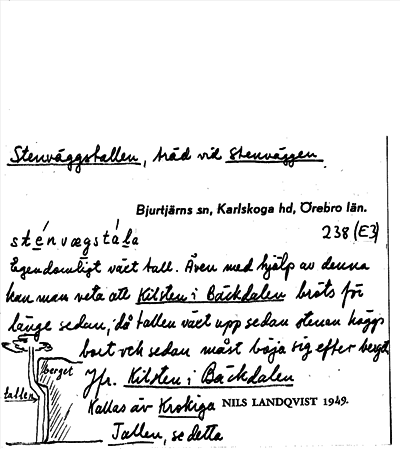 Stenväggstallen, träd vid Stenväggen.
Bjurtjärns sn, Karlskoga hd, Örebro län.
sténvægstála
238 (E3)
Egendomligt växt tall. Även med hjälp av denna
kan man veta att Kilsten i Bäckdalen bröts för
länge sedan, då tallen växt upp sedan stenen höggs
bort och sedan måst böja sig efter berget
berget
tallen
Jfr. Kilsten i Bäckdalen
Kallas äv Krokiga
NILS LANDQVIST 1949.
Tallen, se detta